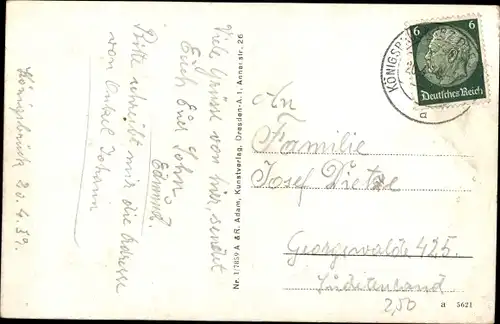 Königsbrück 20.4.39.
Viele Grüsse von hier, sendet
Euch Euer Sohn
Edmund.
Bitte schreibt mir die Adresse
von Onkel Johann
Nr. 1/7859 A & R. Adam, Kunstverlag, Dresden-A. 1, Annenstr. 26
KÖNIGSBR
a
6 6
Deutsches Reich
An
Familie
Josef Dietze
Georgswalde 425.
Sudetenland
2,50
a 5621